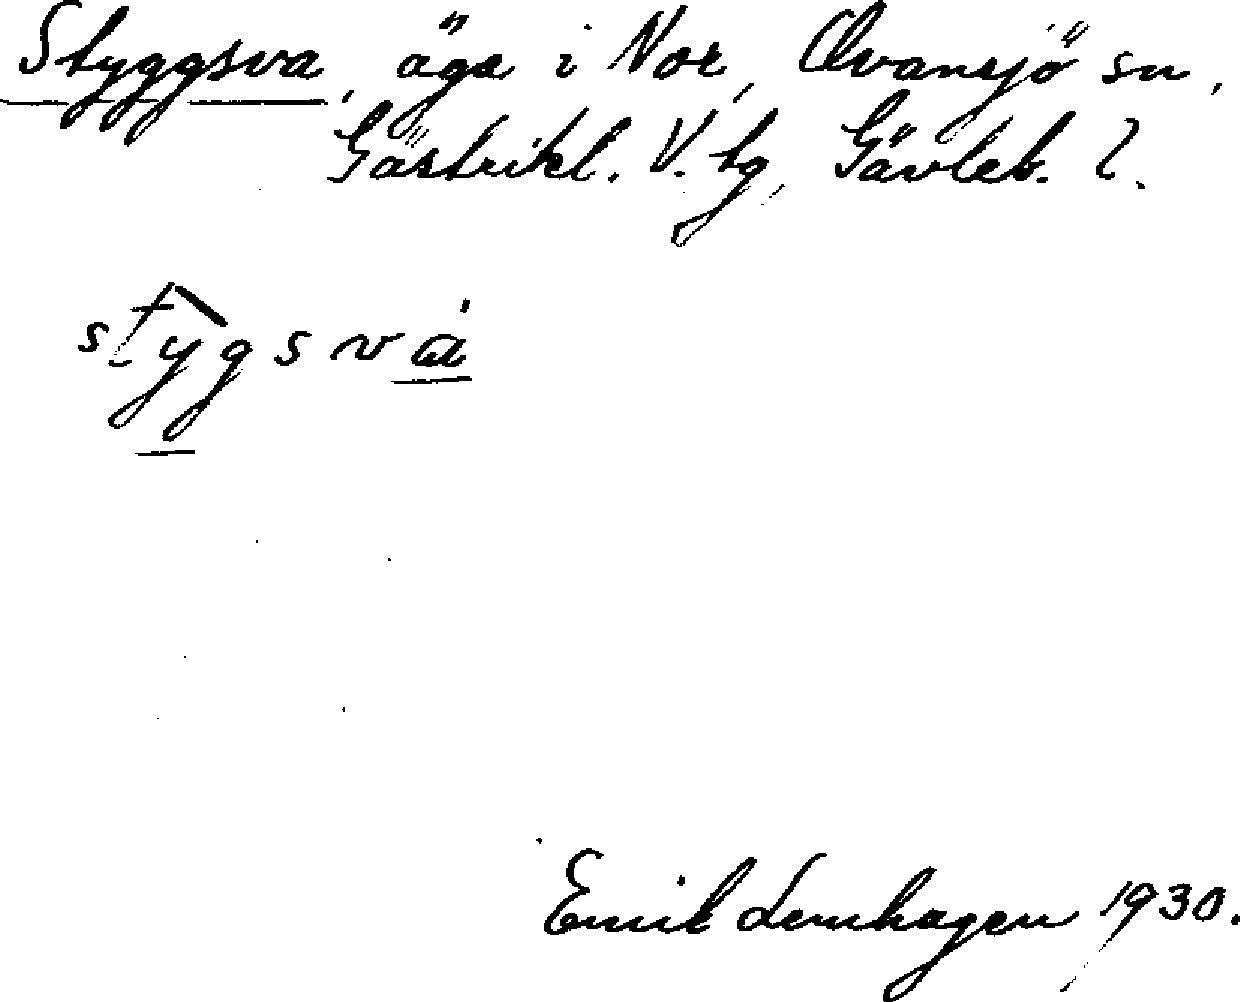 Styggsva, äga i Nor, Ovansjö sn,
Gästrikl. V. tg, Gävleb. l.
stygsvà
Emik Lenhagen 1930.